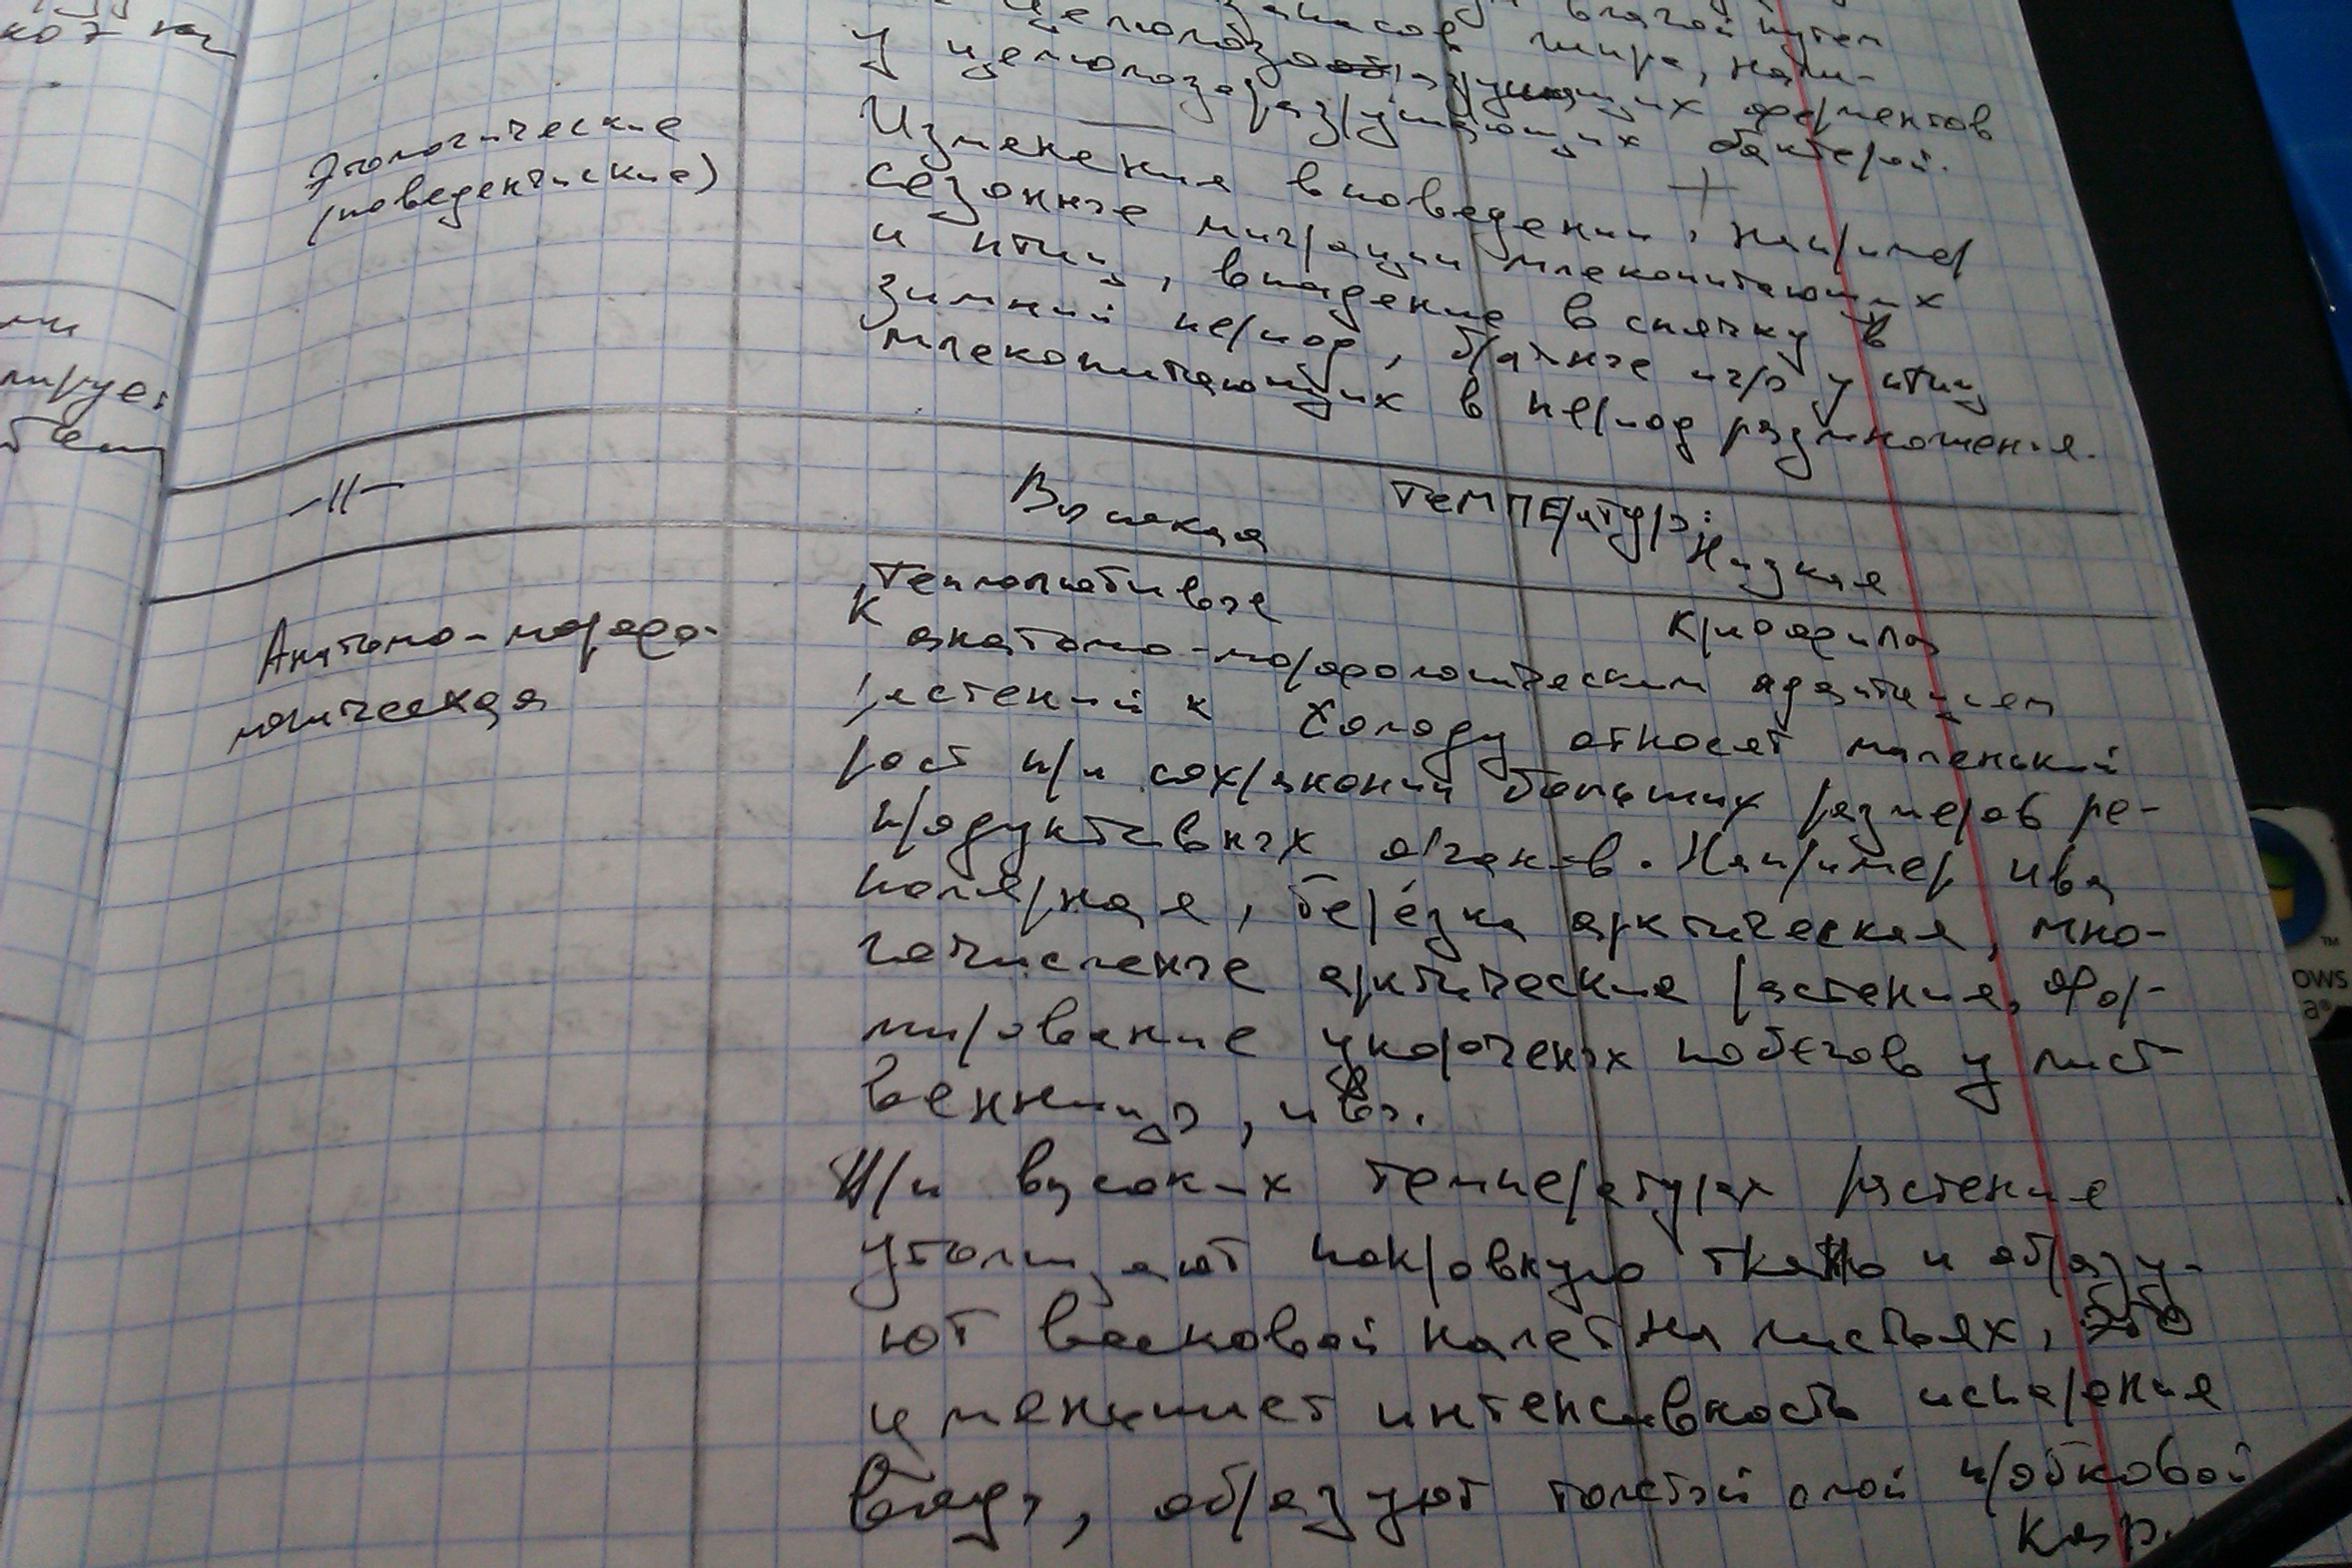 влагой путем
запасов жира, нали-
целлюлозоразрушающих ферментов
у целлюлозаразрушающих бактерий.
Этологические
(поведенческие)
Изменения в поведении, например
сезонные миграции млекопитающих
и птиц, впадение в спячку в
зимний период, брачные игры у птиц
млекопитающих в период размножения.
-||-
температуры:
Высокая
Низкая
Анатомо-морфо-
логическая
Теплолюбивые
Криофилы
К анатомо-морфологическим адаптациям
растений к холоду относят маленький
рост при сохранении больших размеров ре-
продуктивных органов. Например, ива
полярная, берёзка арктическая, мно-
гочисленые арктические растения, фор-
мирование укороченых побегов у лист-
венницы, ивы.
При высоких температурах растение
утолщают покровную ткань и образу-
ют восковой налет на листьях, это
уменьшает интенсивность испарения
воды, образуют толстый слой пробковой
ows